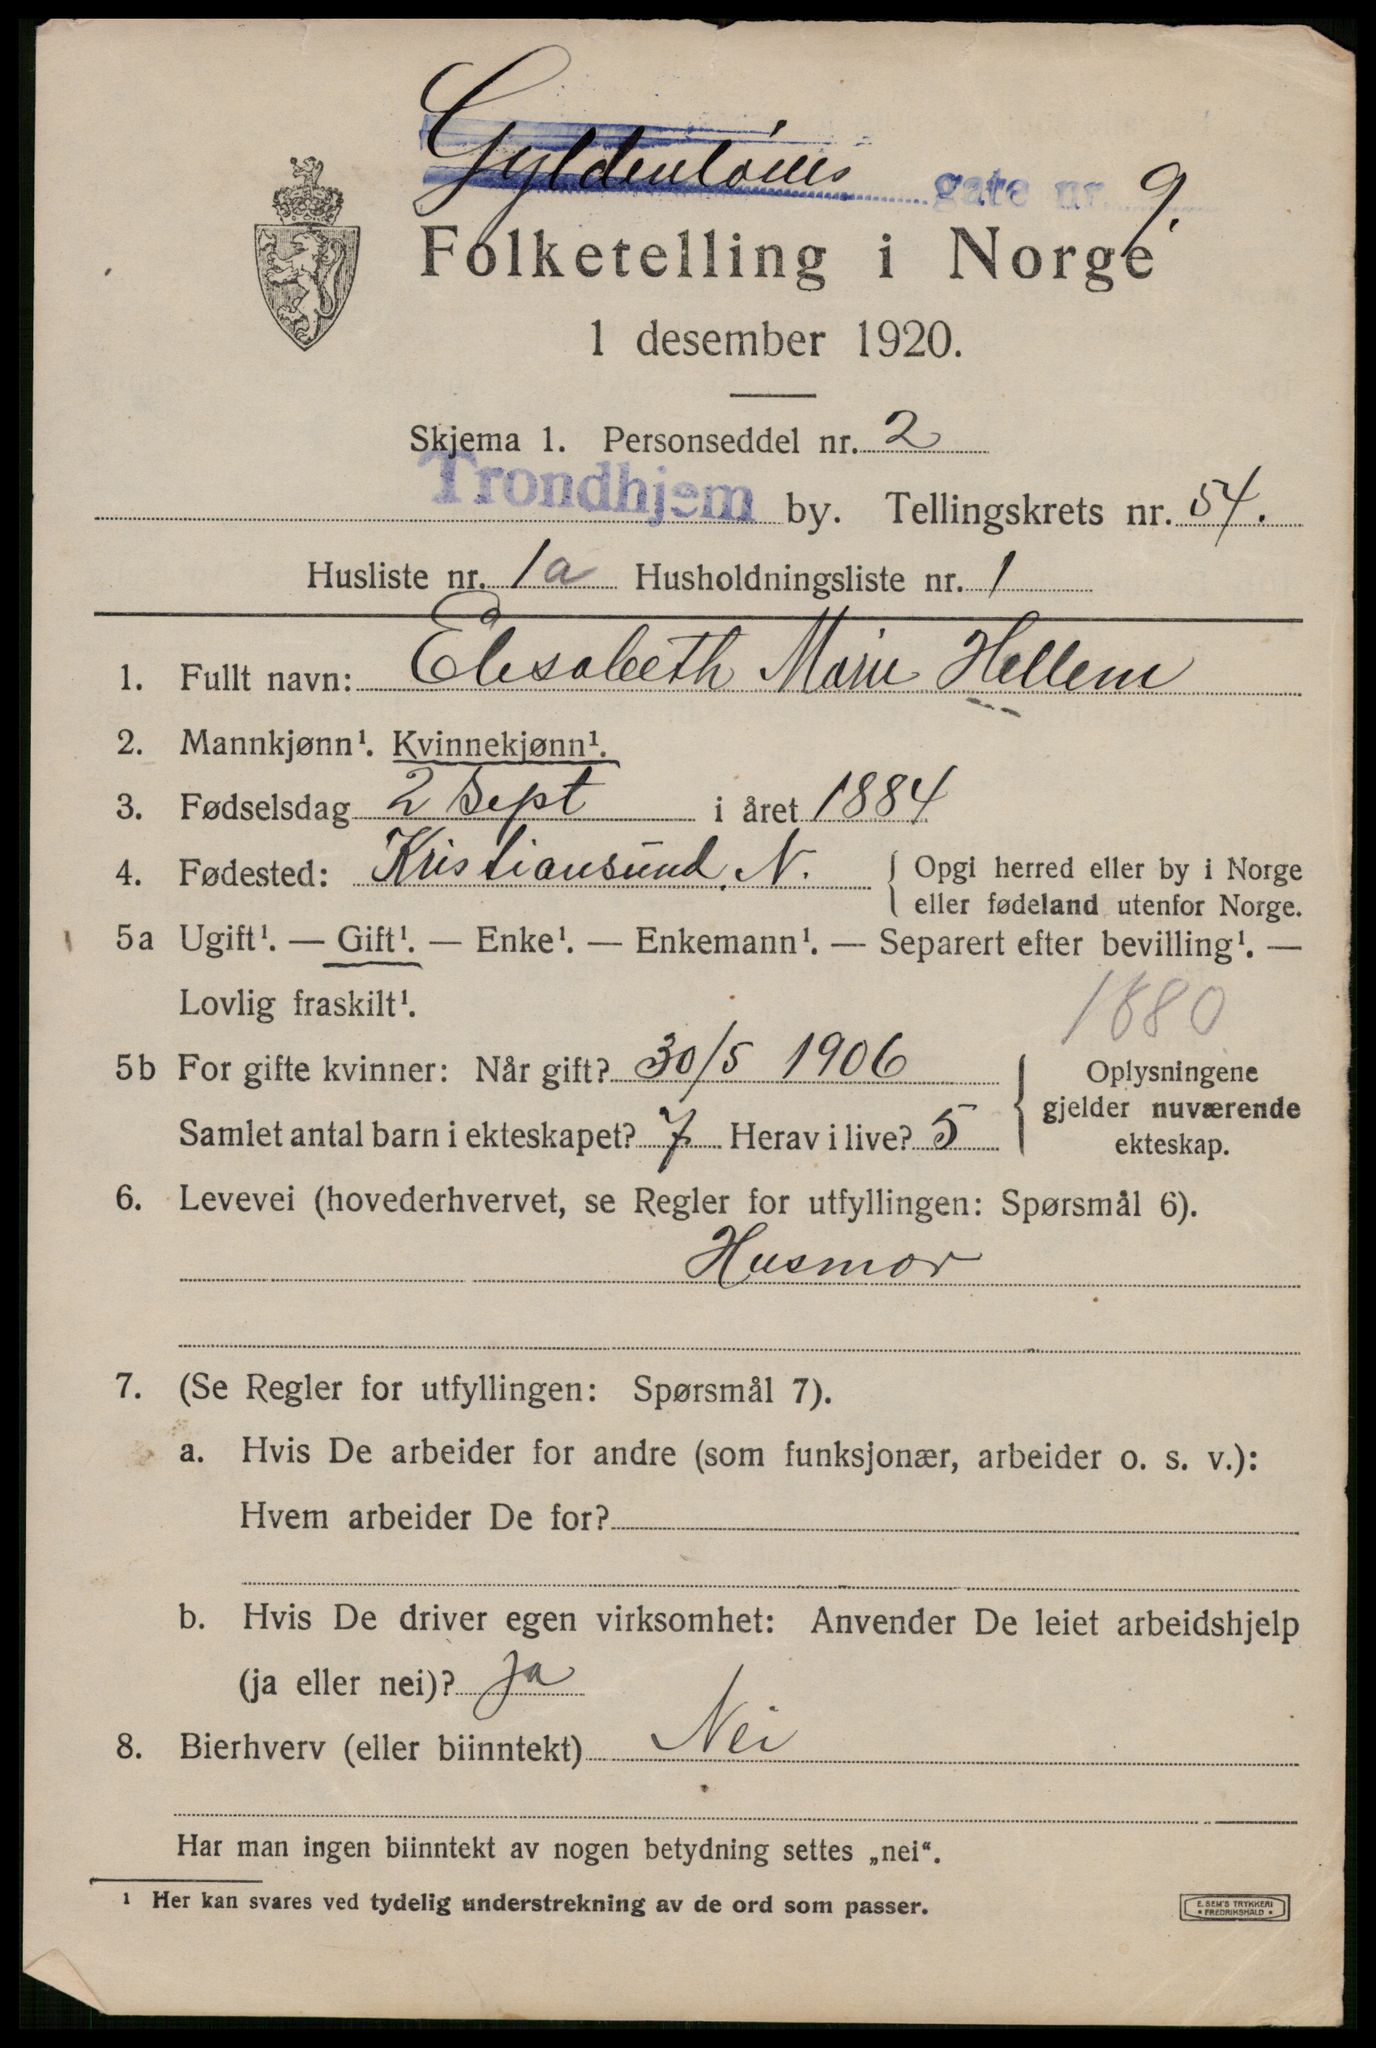 Gyldenløves gate nr. 9.
Folketelling i Norge
1 desember 1920.
Skjema 1. Personseddel nr. 2
Trondhjem by. Tellingskrets nr. 54.
Husliste nr. 1a Husholdningsliste nr. 1
1. Fullt navn: Elisabeth Marie Hellem
2. Mannkjønn¹. Kvinnekjønn¹.
3. Fødselsdag 2 Sept i året 1884
4. Fødested: Kristiansund. N. { Opgi herred eller by i Norge
eller fødeland utenfor Norge.
5a Ugift¹. — Gift¹. — Enke¹. — Enkemann¹. — Separert efter bevilling¹. —
Lovlig fraskilt¹.
1880
5b For gifte kvinner: Når gift? 30/5 1906
Samlet antal barn i ekteskapet? 7 Herav i live? 5
Oplysningene
gjelder nuværende
ekteskap.
6. Levevei (hovederhvervet, se Regler for utfyllingen: Spørsmål 6).
Husmor
7. (Se Regler for utfyllingen: Spørsmål 7).
a. Hvis De arbeider for andre (som funksjonær, arbeider o. s. v.):
Hvem arbeider De for?
b. Hvis De driver egen virksomhet: Anvender De leiet arbeidshjelp
(ja eller nei)? Ja
8. Bierhverv (eller biinntekt) Nei
Har man ingen biinntekt av nogen betydning settes „nei“.
¹ Her kan svares ved tydelig understrekning av de ord som passer.
E. SEM'S TRYKKERI
* FREDRIKSHALD *